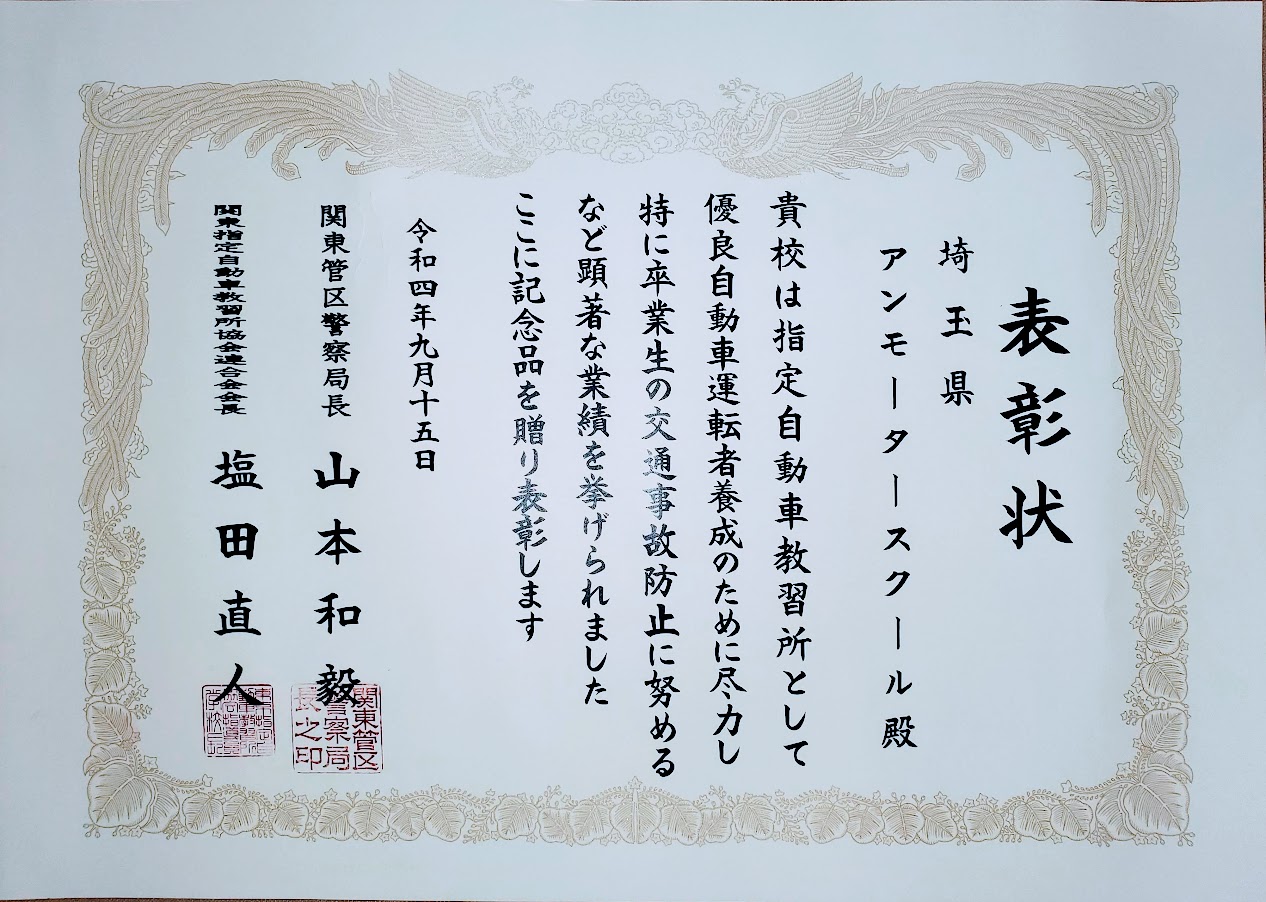 表彰状
埼玉県
アンモータースクール殿
貴校は指定自動車教習所として
優良自動車運転者養成のために尽力し
特に卒業生の交通事故防止に努める
など顕著な業績を挙げられました
ここに記念品を贈り表彰します
令和四年九月十五日
関東管区警察局長 山本和毅
関東管区警察局長之印
関東指定自動車教習所協会連合会会長 塩田直人